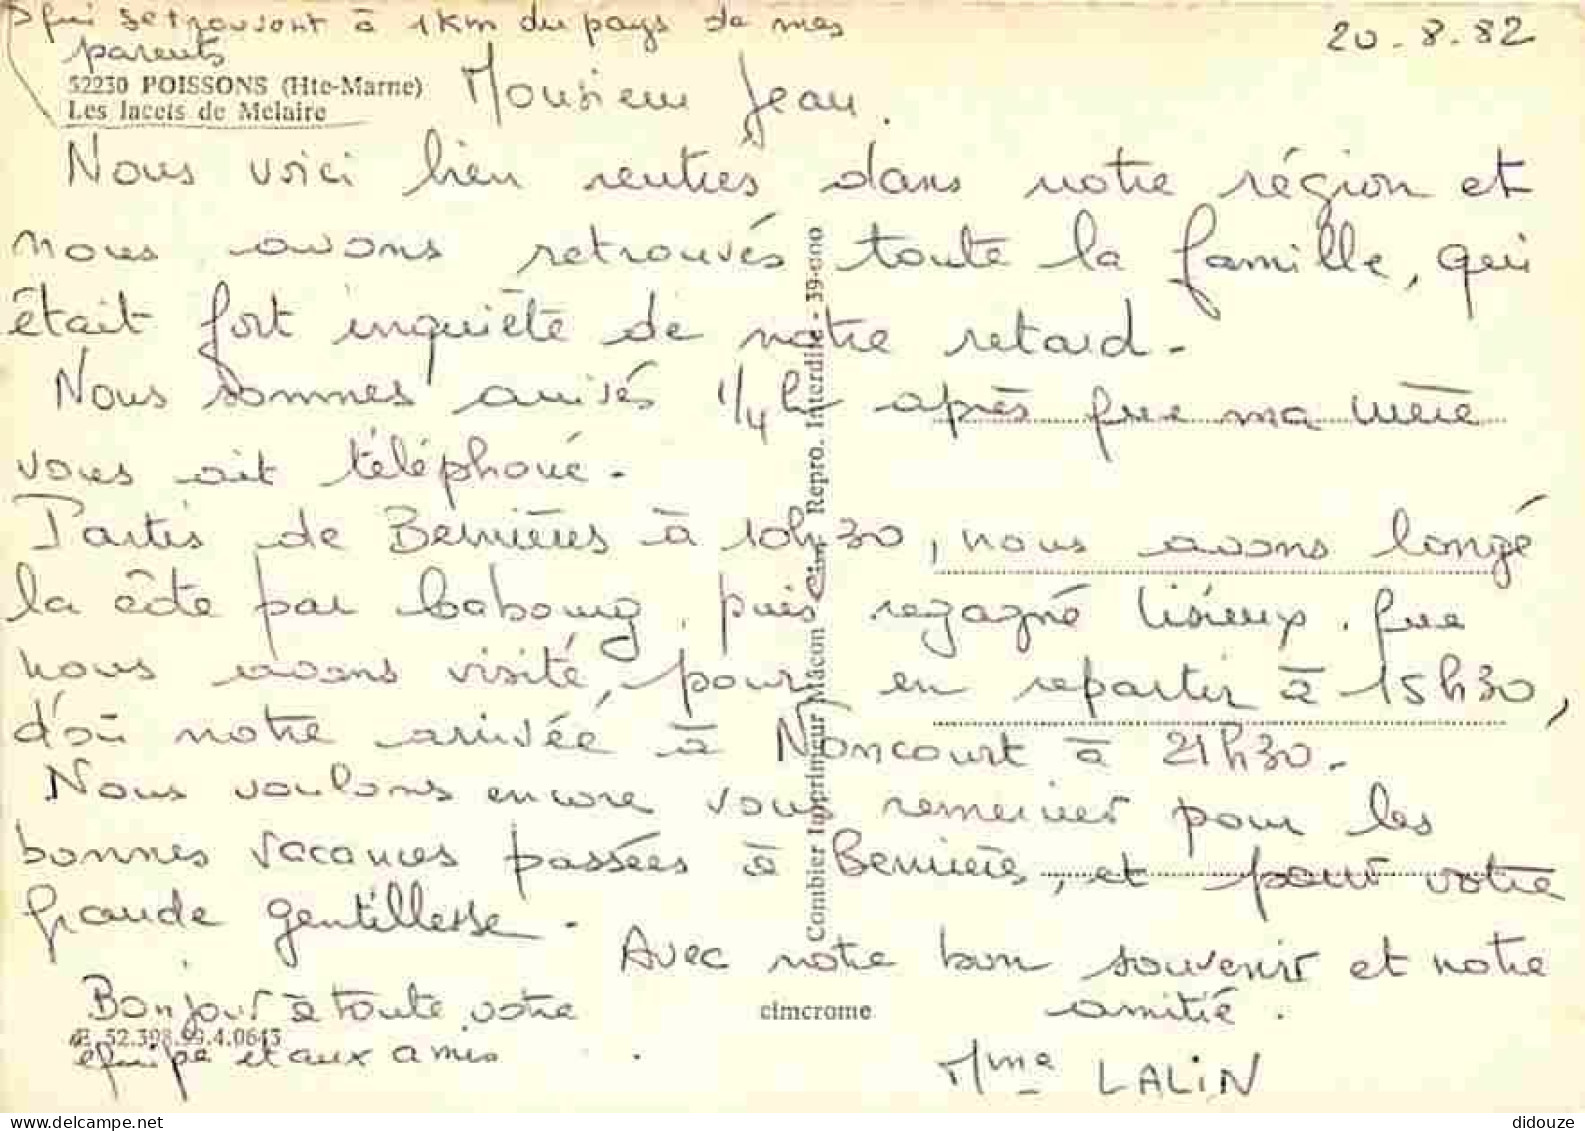 qui se trouvent à 1 km du pays de mes
parents
20.8.82
52230 POISSONS (Hte-Marne)
Les lacets de Melaire
Monsieur Jean.
Nous voici bien rentrés dans notre région et
nous avons retrouvés toute la famille, qui
était fort inquiète de notre retard.
Nous sommes arrivés 1/4h après que ma mère
vous ait téléphoné.
Partis de Bernières à 10h30, nous avons longé
la côte par Cabourg, puis regagné Lisieux. que
nous avons visité, pour en repartir à 15h30,
d'où notre arrivée à Noncourt à 21h30.
Nous voulons encore vous remercier pour les
bonnes vacances passées à Bernières, et pour votre
grande gentillesse.
Avec notre bon souvenir et notre
amitié.
Bonjour à toute votre
équipe et aux amis
Mme LALIN
Combier Imprimeur Mâcon Cim Repro. Interdite - 39-000
cimcrome
E. 52.398.99.4.0643
didouze
delcampe.net